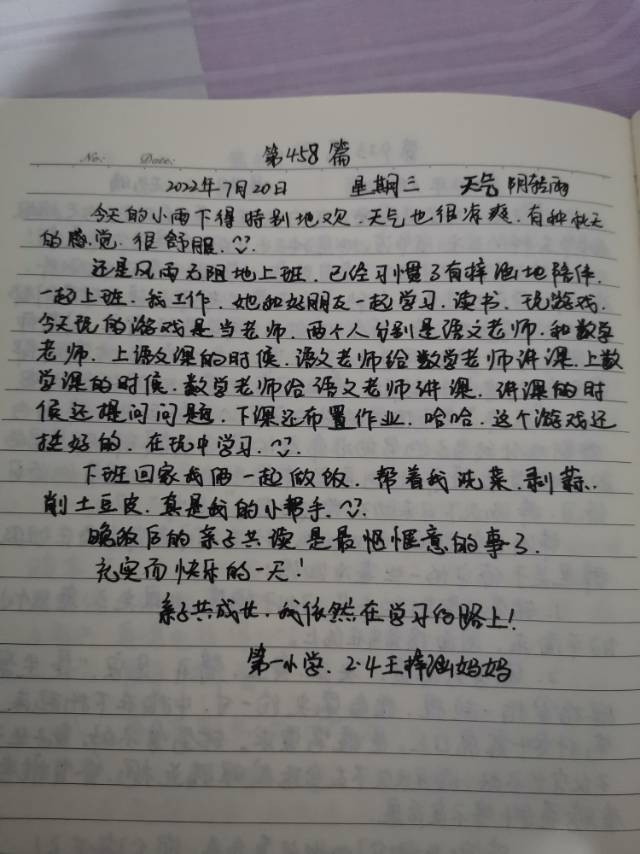 第458篇
No: Date:
2022年7月20日 星期三 天气 阴转雨
今天的小雨下得特别地欢.天气也很凉爽.有种秋天
的感觉.很舒服.
还是风雨无阻地上班.已经习惯了有梓涵地陪伴.
一起上班.我工作.她和好朋友一起学习.读书.玩游戏.
今天玩的游戏是当老师.两个人分别是语文老师.和数学
老师.上语文课的时候.语文老师给数学老师讲课.上数
学课的时候.数学老师给语文老师讲课.讲课的时
候还提问问题.下课还布置作业.哈哈.这个游戏还
挺好的.在玩中学习.
下班回家我俩一起做饭.帮着我洗菜.剥蒜.
削土豆皮.真是我的小帮手.
晚饭后的亲子共读是最惬惬意的事了.
充实而快乐的一天!
亲子共成长.我依然在学习的路上!
第一小学.2.4王梓涵妈妈